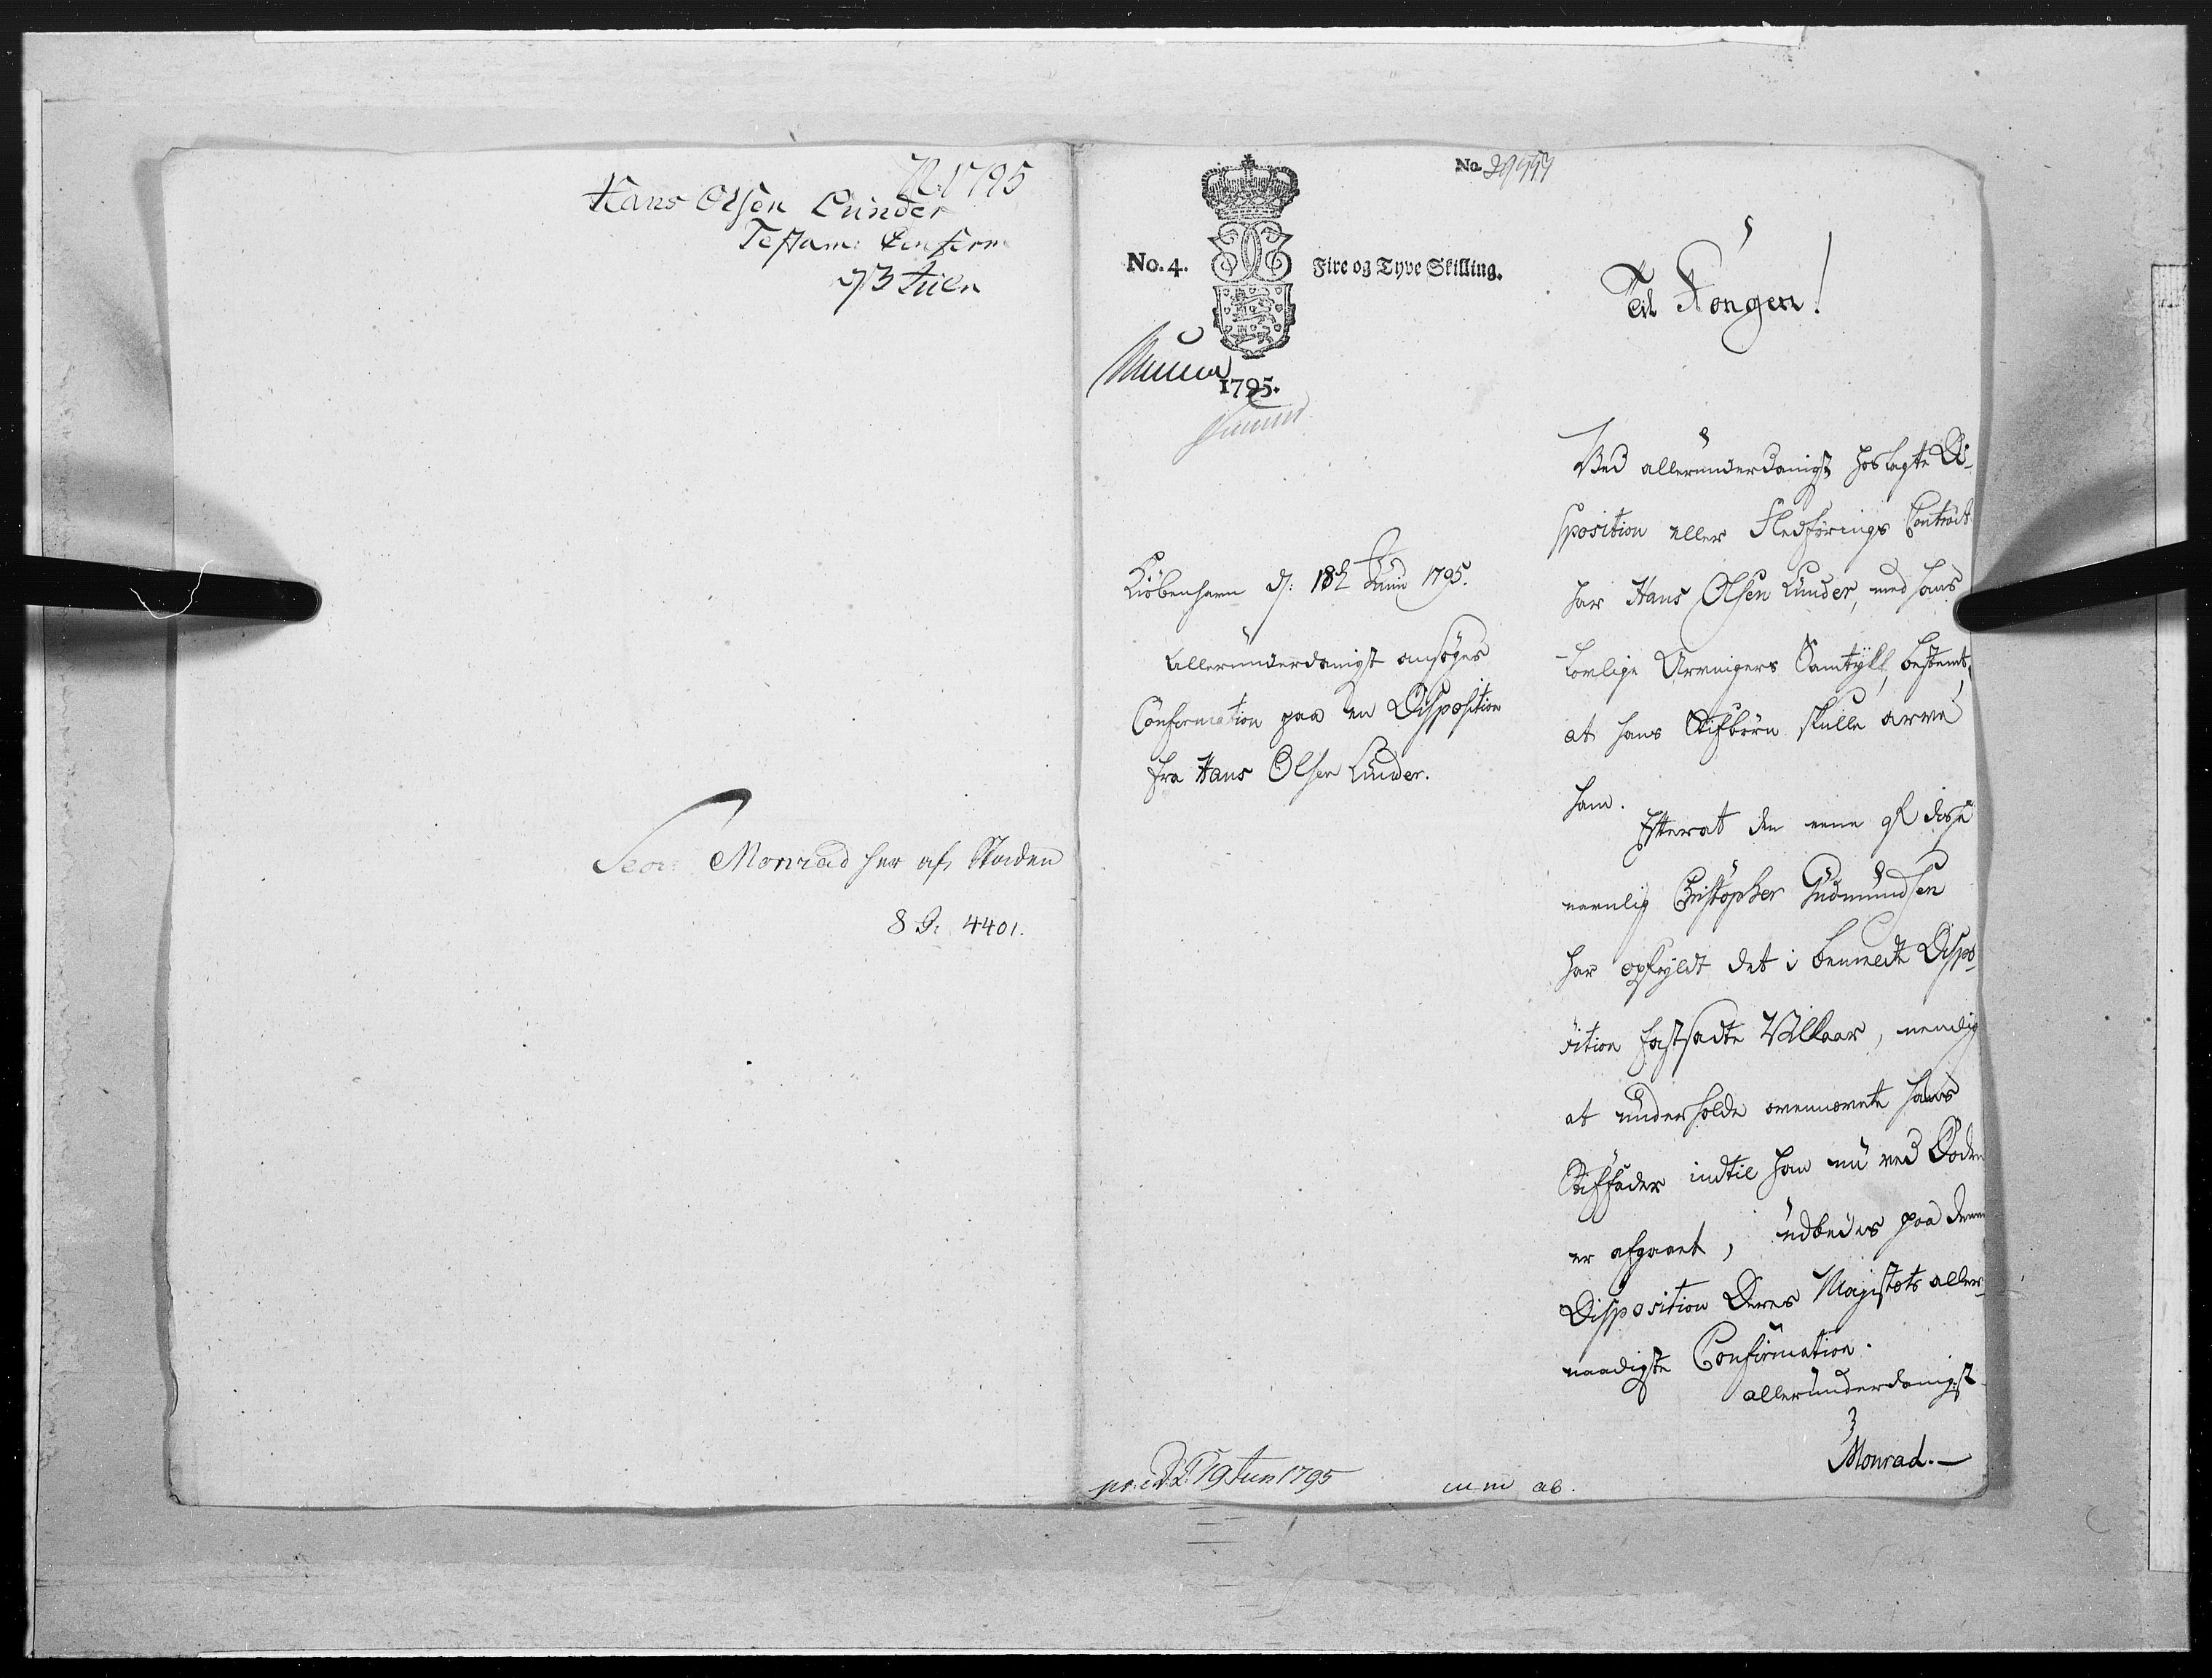 1795
Hans Olsen Lunder
Testam: Confirm
3 Julii
Monrad her af Staden
8 D: 4401.
No.
No. 4.
Fire og Tyve Skilling.
1795.
Kiöbenhavn d: 18de Junii 1795.
Allerunderdanigst ansöges
Confirmation paa en Disposition
fra Hans Olsen Lunder.
pr: 19 Jun 1795
Til Kongen!
Ved allerunderdanigst hoslagte Di-
sposition eller Fledförings Contract
har Hans Olsen Lunder, med hans
Lovlige Arvingers Samtykke, bestemt,
at hans Stifbörn skulle arve
ham.
Efterat den eene af disse
navnlig Christopher Gudmundsen
har opfyldt det i bemelte Dispo-
sition fastsadte Vilkaar, nemlig
at underholde ovennævnte hans
Stiffader indtil han nu ved Döden
er afgaaet, udbedes paa denne
Disposition Deres Majestæts aller-
naadigste Confirmation.
allerunderdanigst
Monrad.